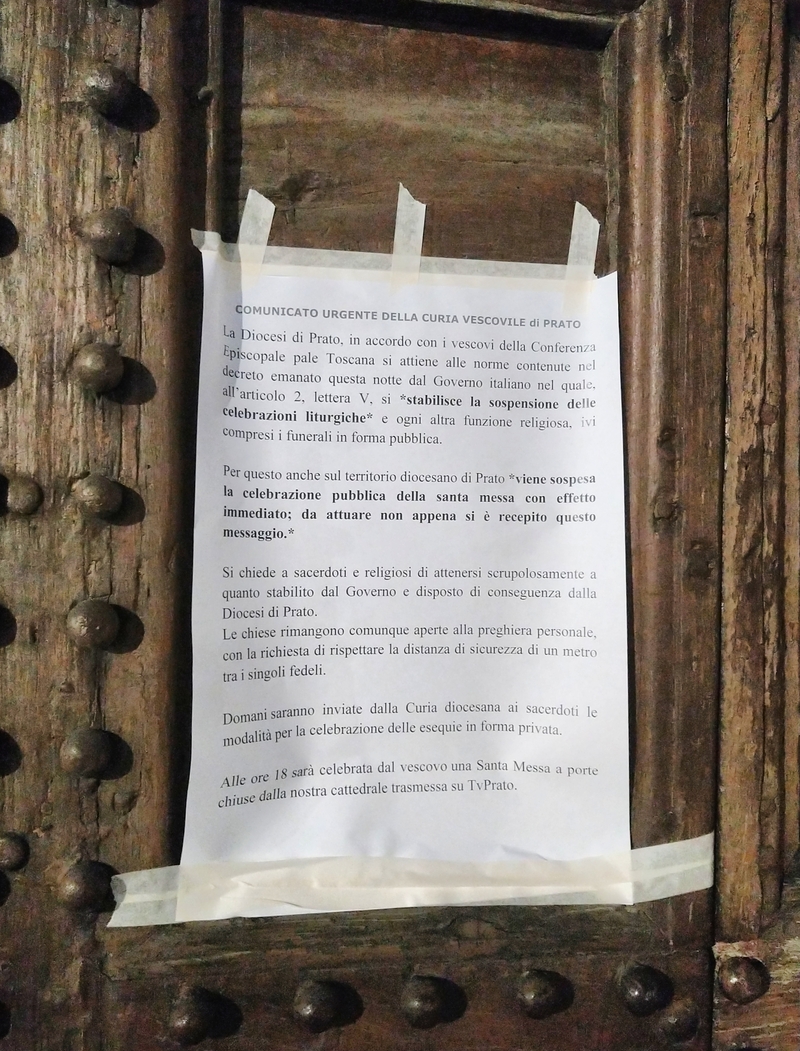 COMUNICATO URGENTE DELLA CURIA VESCOVILE di PRATO
La Diocesi di Prato, in accordo con i vescovi della Conferenza
Episcopale pale Toscana si attiene alle norme contenute nel
decreto emanato questa notte dal Governo italiano nel quale,
all'articolo 2, lettera V, si *stabilisce la sospensione delle
celebrazioni liturgiche* e ogni altra funzione religiosa, ivi
compresi i funerali in forma pubblica.
Per questo anche sul territorio diocesano di Prato *viene sospesa
la celebrazione pubblica della santa messa con effetto
immediato; da attuare non appena si è recepito questo
messaggio.*
Si chiede a sacerdoti e religiosi di attenersi scrupolosamente a
quanto stabilito dal Governo e disposto di conseguenza dalla
Diocesi di Prato.
Le chiese rimangono comunque aperte alla preghiera personale,
con la richiesta di rispettare la distanza di sicurezza di un metro
tra i singoli fedeli.
Domani saranno inviate dalla Curia diocesana ai sacerdoti le
modalità per la celebrazione delle esequie in forma privata.
Alle ore 18 sarà celebrata dal vescovo una Santa Messa a porte
chiuse dalla nostra cattedrale trasmessa su TvPrato.